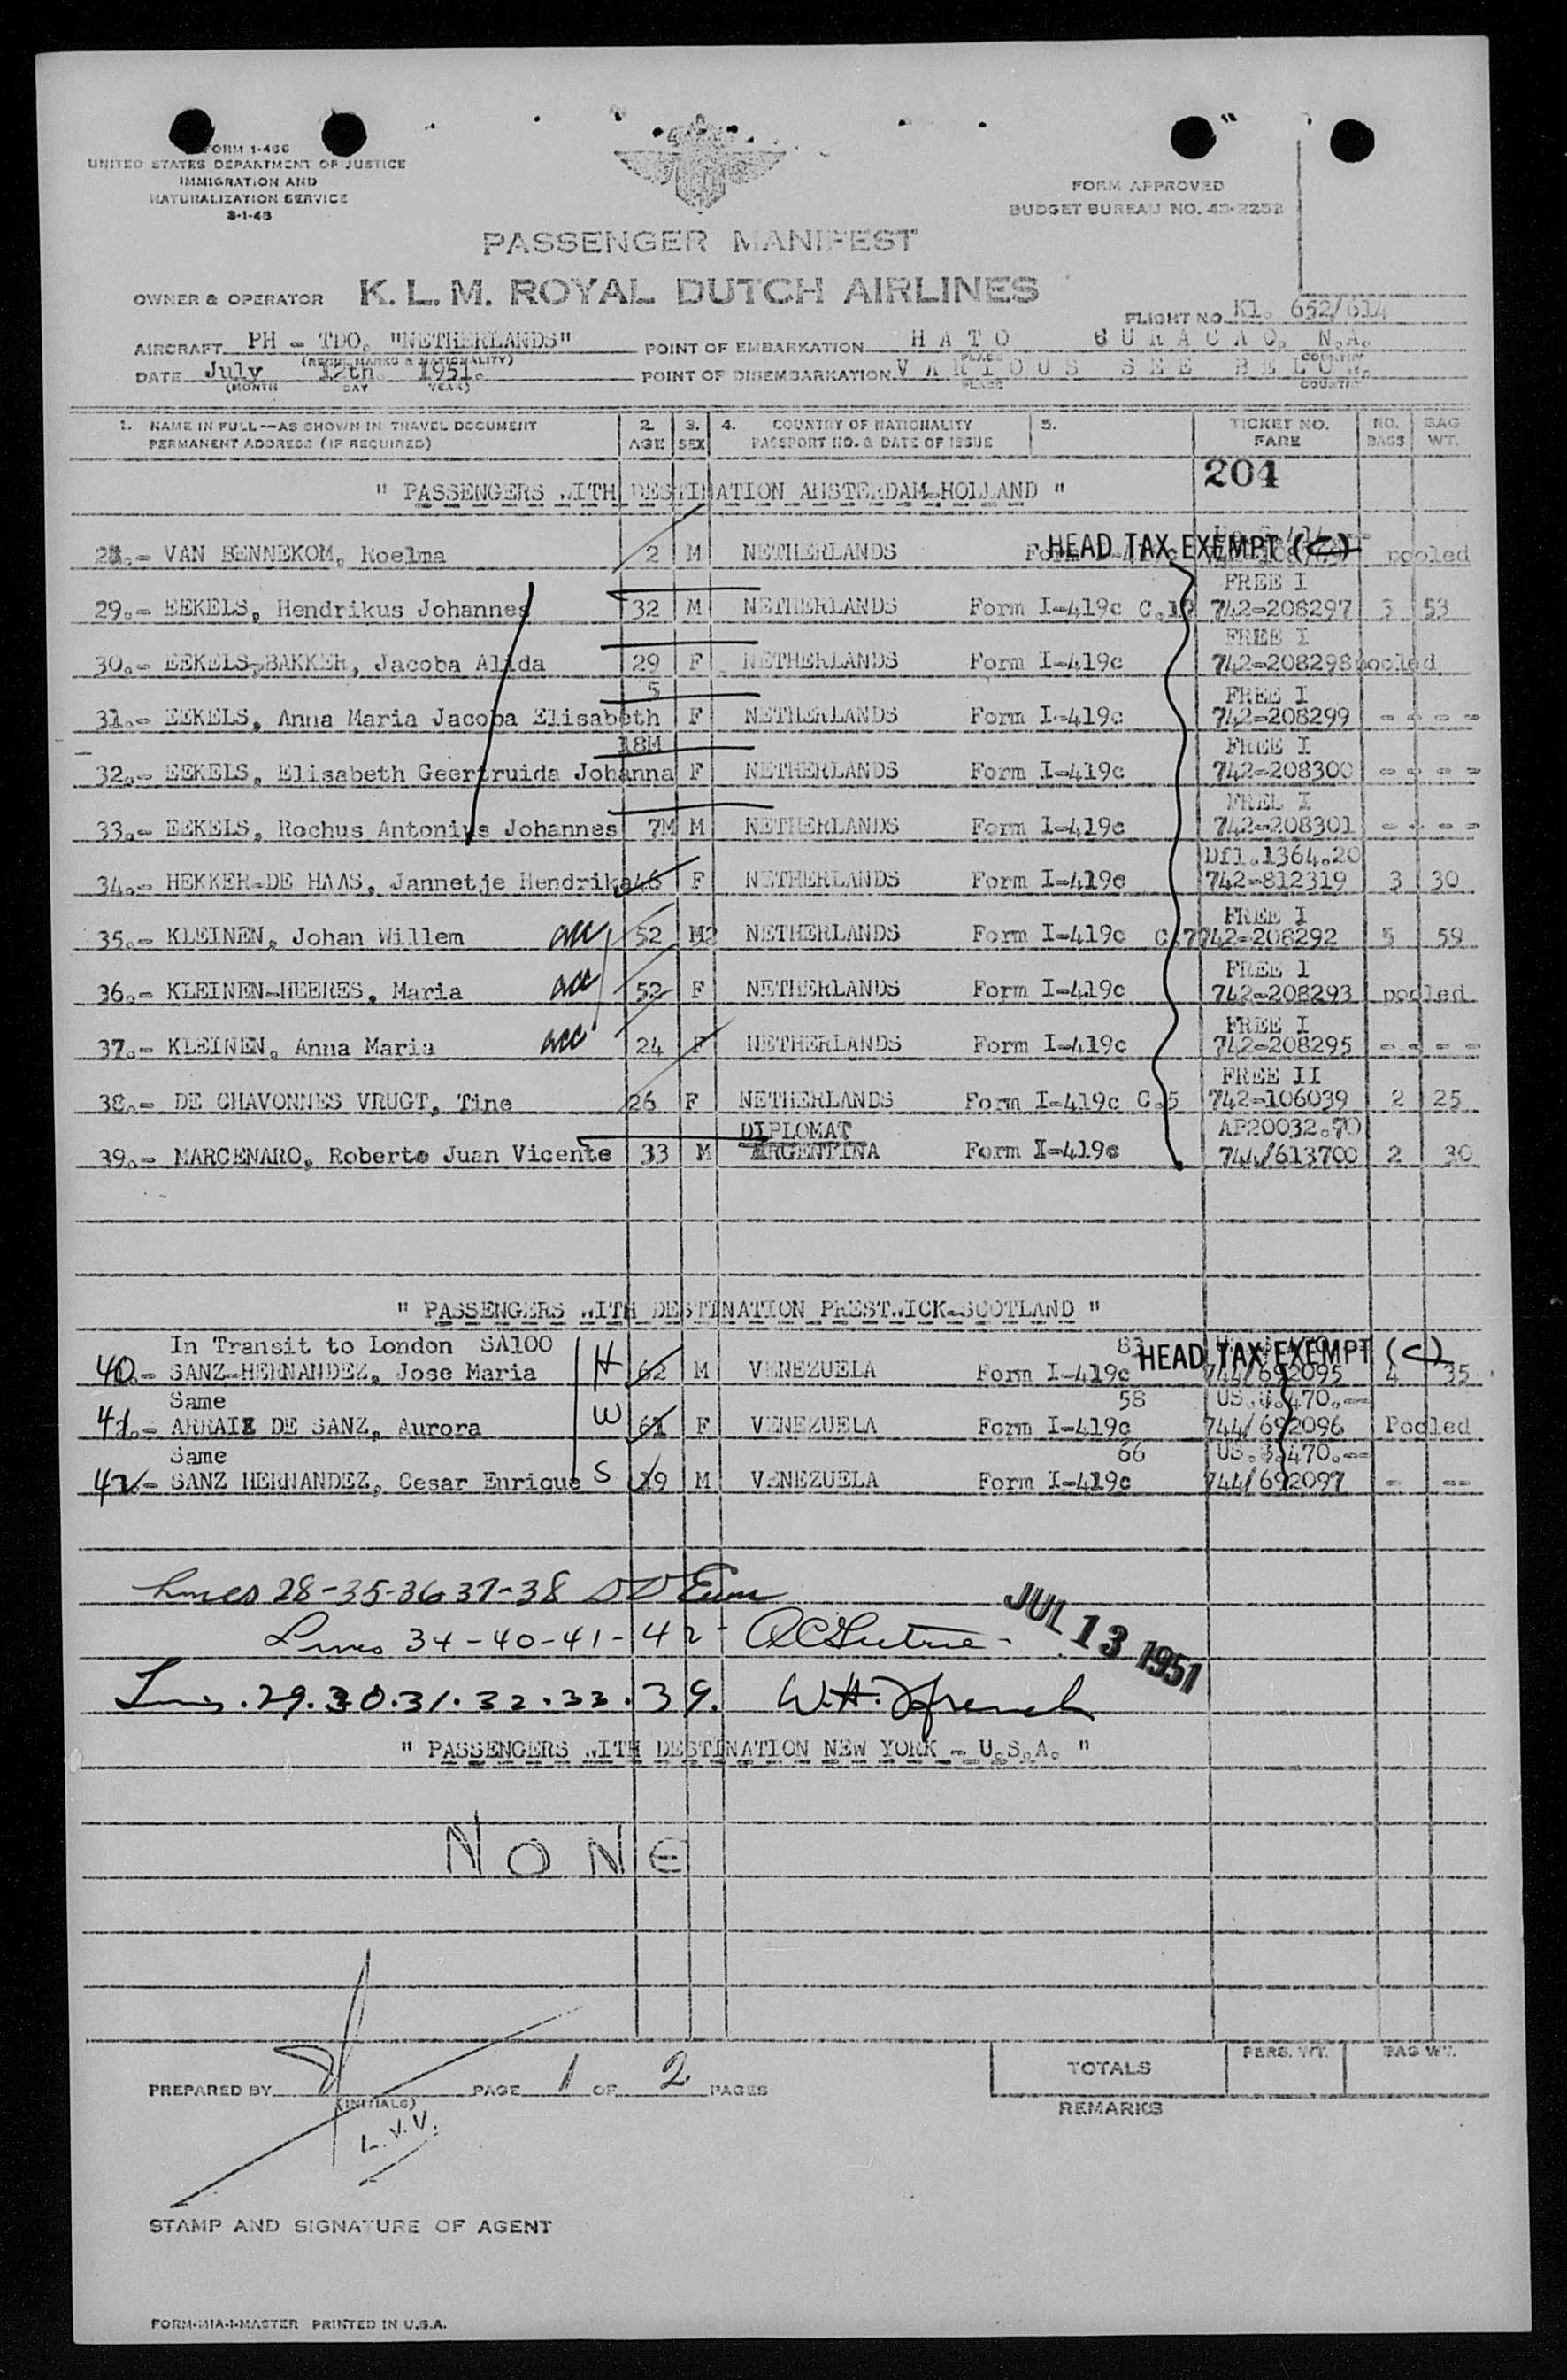 FORM 1-466
UNITED STATES DEPARTMENT OF JUSTICE
IMMIGRATION AND
NATURALIZATION SERVICE
FORM APPROVED
BUDGET BUREAU NO. 43-R252
PASSENGER MANIFEST
OWNER & OPERATOR K. L. M. ROYAL DUTCH AIRLINES
FLIGHT NO. Kl. 652/614
AIRCRAFT PH - TDO. "NETHERLANDS" POINT OF EMBARKATION H A T O C U R A C A O. N.A.
(REGIS. MARKS & NATIONALITY) PLACE COUNTRY
DATE July 12th. 1951. POINT OF DISEMBARKATION V A R I O U S S E E B E L O W.
(MONTH DAY YEAR) PLACE COUNTRY
1. NAME IN FULL—AS SHOWN IN TRAVEL DOCUMENT 2. 3. 4. COUNTRY OF NATIONALITY 5. TICKET NO. NO. BAG
PERMANENT ADDRESS (IF REQUIRED) AGE SEX PASSPORT NO. & DATE OF ISSUE FARE BAGS WT.
204
" PASSENGERS WITH DESTINATION AMSTERDAM-HOLLAND "
28.- VAN BENNEKOM, Roelma 2 M NETHERLANDS HEAD TAX EXEMPT (C) pooled
FREE I
29.- EEKELS, Hendrikus Johannes 32 M NETHERLANDS Form I-419c 742-208297 3 53
FREE I
30.- EEKELS-BAKKER, Jacoba Alida 29 F NETHERLANDS Form I-419c 742-208298 pooled
5 FREE I
31.- EEKELS, Anna Maria Jacoba Elisabeth F NETHERLANDS Form I-419c 742-208299 - - - -
18M FREE I
32.- EEKELS, Elisabeth Geertruida Johanna F NETHERLANDS Form I-419c 742-208300 - - - -
FREE I
33.- EEKELS, Rochus Antonius Johannes 7M M NETHERLANDS Form I-419c 742-208301 - - - -
Dfl.1364.20
34.- HEKKER-DE HAAS, Jannetje Hendrika 46 F NETHERLANDS Form I-419c 742-812319 3 30
FREE I
35.- KLEINEN, Johan Willem acc 52 M NETHERLANDS Form I-419c C.7 742-208292 5 59
FREE I
36.- KLEINEN-HEERES, Maria acc 52 F NETHERLANDS Form I-419c 742-208293 pooled
FREE I
37.- KLEINEN, Anna Maria acc 24 F NETHERLANDS Form I-419c 742-208295 - - - -
FREE II
38.- DE CHAVONNES VRUGT, Tine 26 F NETHERLANDS Form I-419c C.5 742-106039 2 25
DIPLOMAT AP20032.70
39.- MARCENARO, Roberto Juan Vicente 33 M ARGENTINA Form I-419c 744/613700 2 30
" PASSENGERS WITH DESTINATION PRESTWICK-SCOTLAND "
In Transit to London SA100 83 HEAD TAX EXEMPT (C)
40.- SANZ-HERNANDEZ, Jose Maria H 62 M VENEZUELA Form I-419c 744/692095 4 35
Same 58 US.$.470.--
41.- ARRAIZ DE SANZ, Aurora W 61 F VENEZUELA Form I-419c 744/692096 Pooled
Same 66 US.$.470.--
42- SANZ HERNANDEZ, Cesar Enrique S 19 M VENEZUELA Form I-419c 744/692097 - --
Lines 28-35-36 37-38
Lines 34-40-41-42-
JUL 13 1951
Lines.29.30.31.32.33.39. W.H. French
" PASSENGERS WITH DESTINATION NEW YORK - U.S.A. "
NONE
PREPARED BY PAGE 1 OF 2 PAGES
(INITIALS)
L.V.V.
TOTALS PERS. WT. BAG WT.
REMARKS
STAMP AND SIGNATURE OF AGENT
FORM-MIA-1-MASTER PRINTED IN U.S.A.